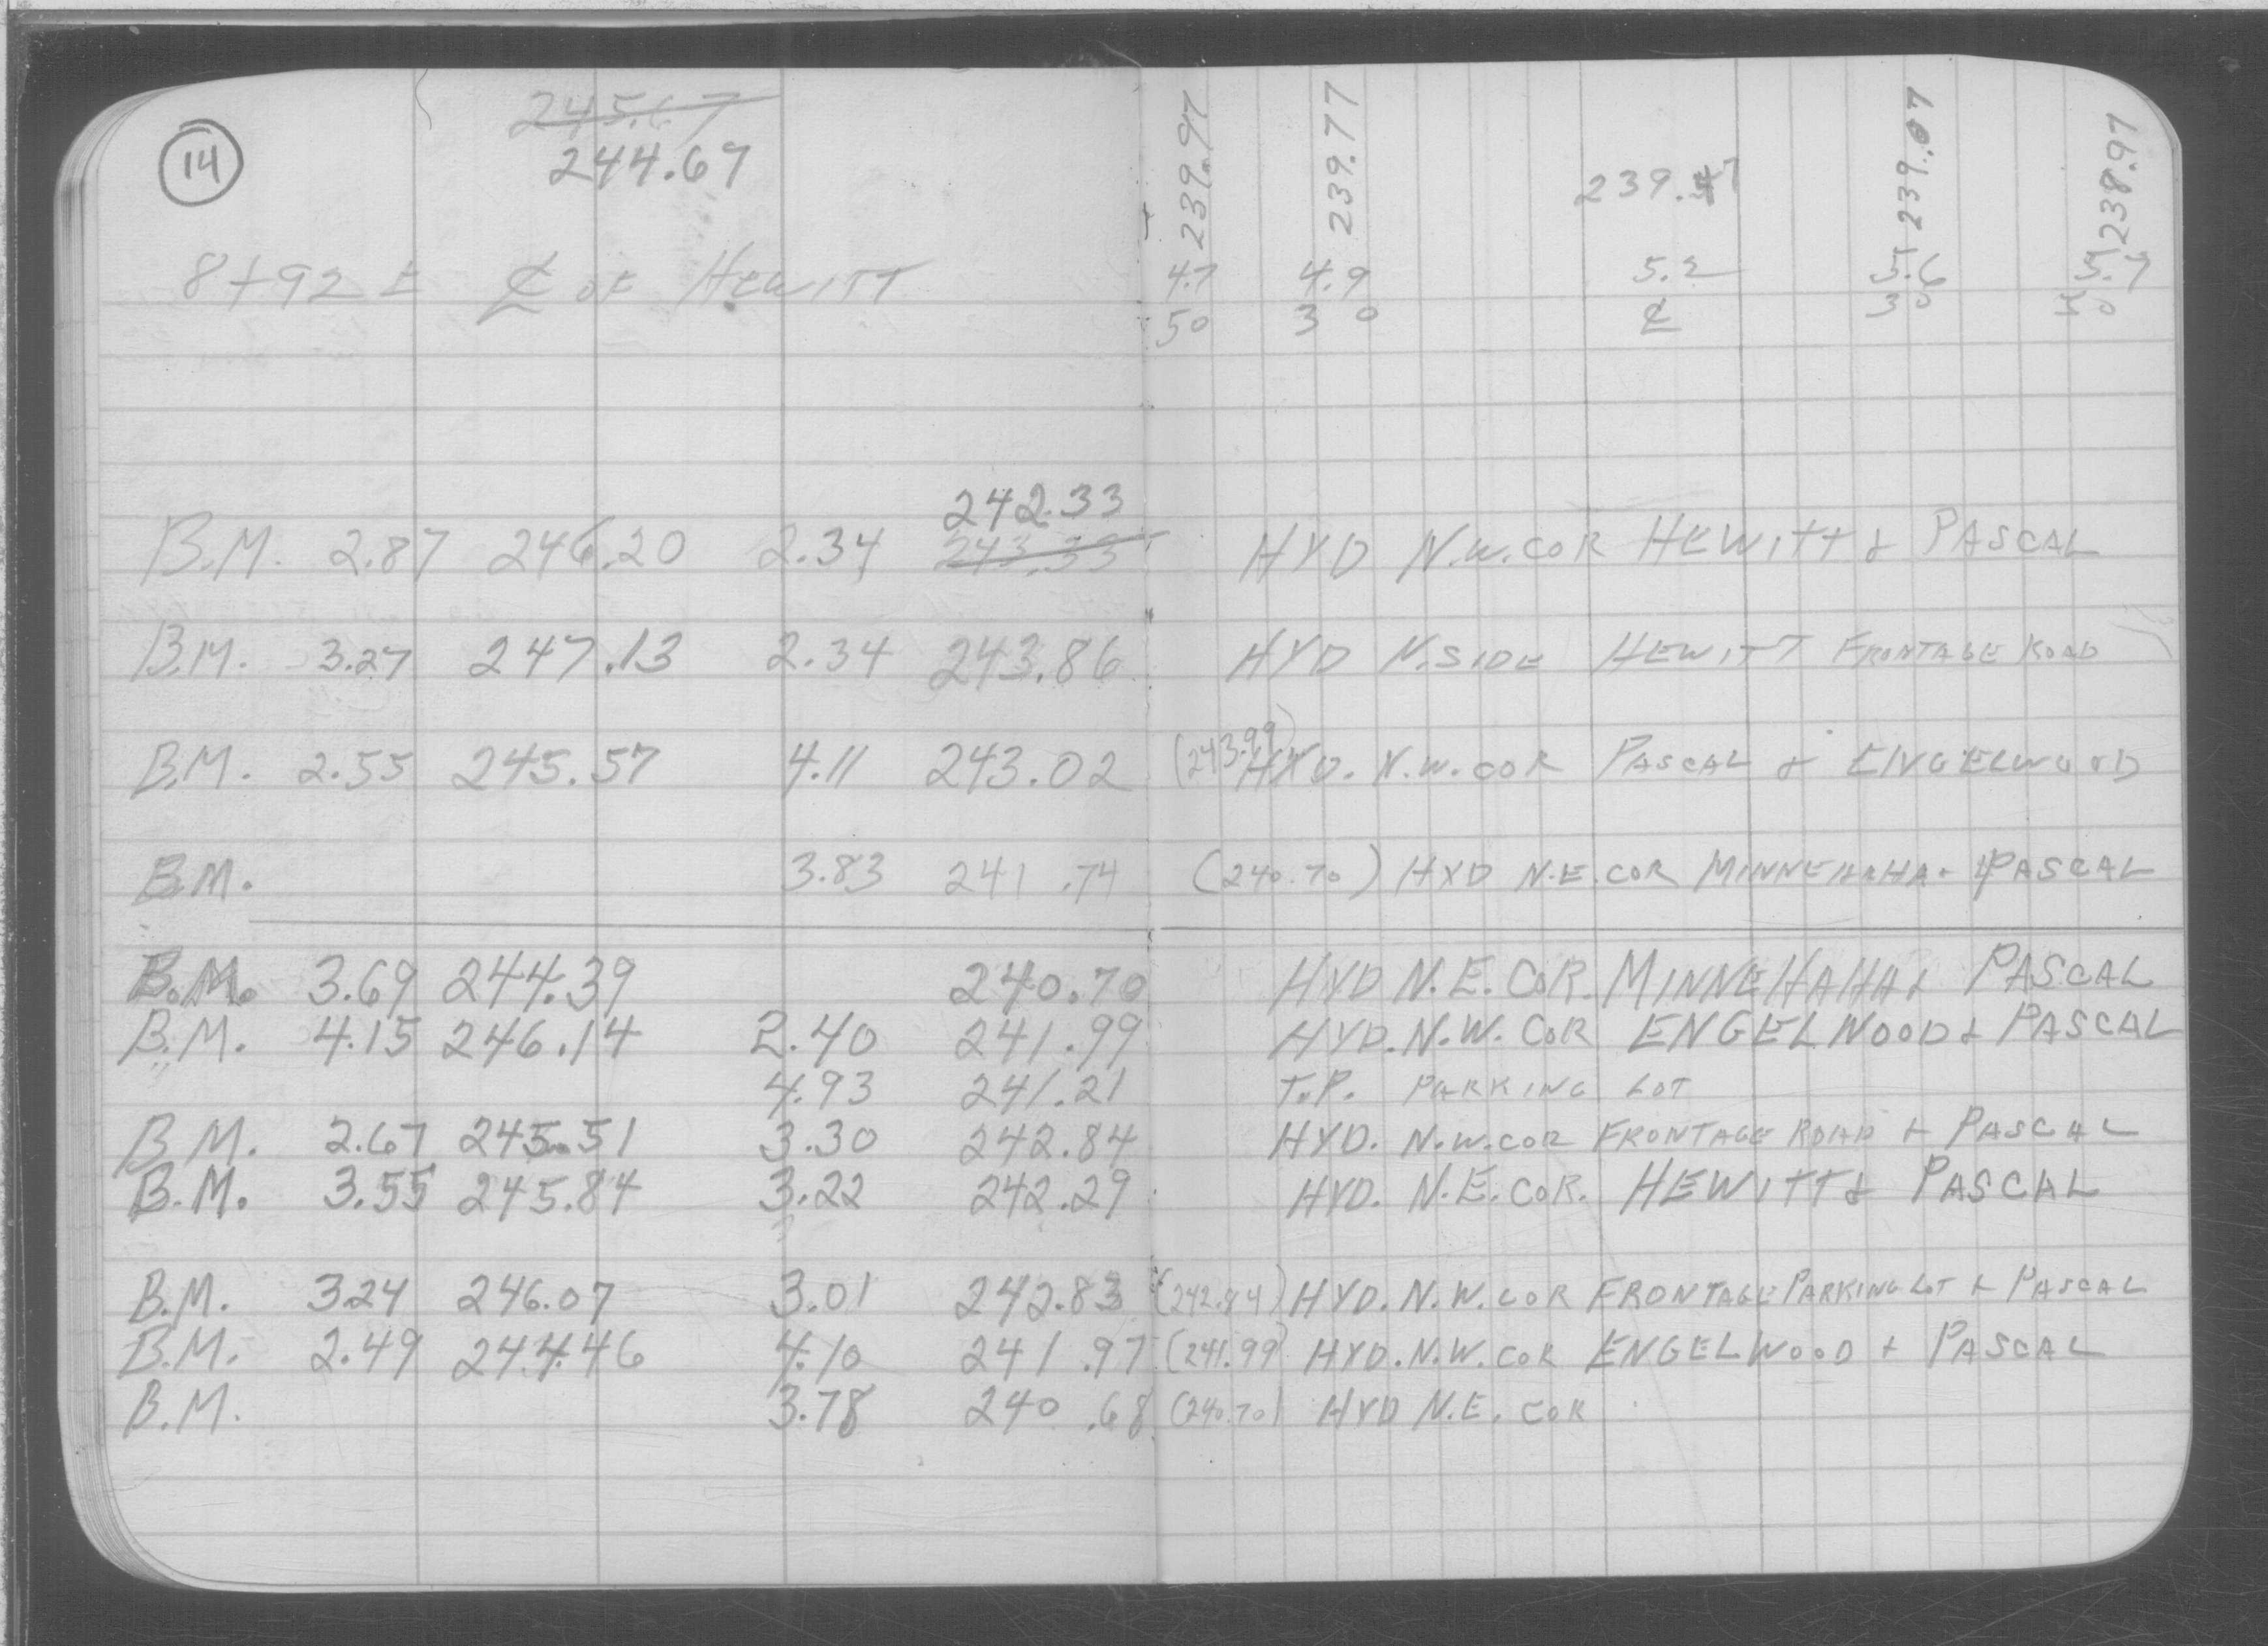 14
245.67
244.67
239.97 239.77 239.47 239.07 238.97
8+92 ± ℄ OF HEWITT 4.7 4.9 5.2 5.6 5.7
50 30 ℄ 30 50
242.33
B.M. 2.87 246.20 2.34 243.33 HYD N.W. COR HEWITT & PASCAL
B.M. 3.27 247.13 2.34 243.86 HYD N. SIDE HEWITT FRONTAGE ROAD
B.M. 2.55 245.57 4.11 243.02 (243.99) HYD. N.W. COR PASCAL & ENGELWOOD
B.M. 3.83 241.74 (240.70) HYD N.E. COR MINNEHAHA & PASCAL
B.M. 3.69 244.39 240.70 HYD N.E. COR. MINNEHAHA & PASCAL
B.M. 4.15 246.14 2.40 241.99 HYD. N.W. COR ENGELWOOD & PASCAL
4.93 241.21 T.P. PARKING LOT
B.M. 2.67 245.51 3.30 242.84 HYD. N.W. COR FRONTAGE ROAD & PASCAL
B.M. 3.55 245.84 3.22 242.29 HYD. N.E. COR. HEWITT & PASCAL
B.M. 3.24 246.07 3.01 242.83 (242.84) HYD. N.W. COR FRONTAGE PARKING LOT & PASCAL
B.M. 2.49 244.46 4.10 241.97 (241.99) HYD. N.W. COR ENGELWOOD & PASCAL
B.M. 3.78 240.68 (240.70) HYD N.E. COR